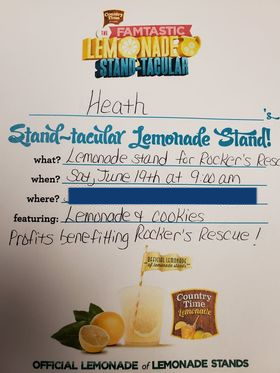 Country Time
THE FAMTASTIC
LEMONADE
STAND-TACULAR
Heath 's
Stand-tacular Lemonade Stand!
what? Lemonade stand for Rocker's Resc
when? Sat, June 19th at 9:00am
where?
featuring: Lemonade & cookies
Profits benefitting Rocker's Rescue!
OFFICIAL LEMONADE
of LEMONADE STANDS
Country Time
Lemonade
OFFICIAL LEMONADE of LEMONADE STANDS